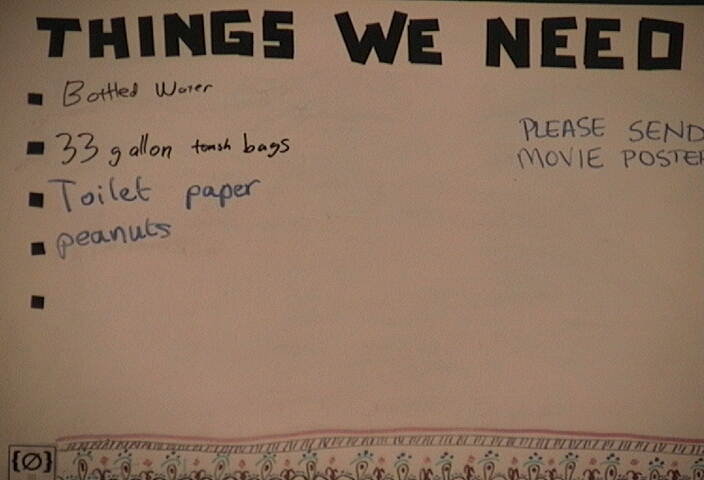 THINGS WE NEED
Bottled Water
33 gallon trash bags
Toilet paper
peanuts
PLEASE SEND
MOVIE POSTER
{Ø}